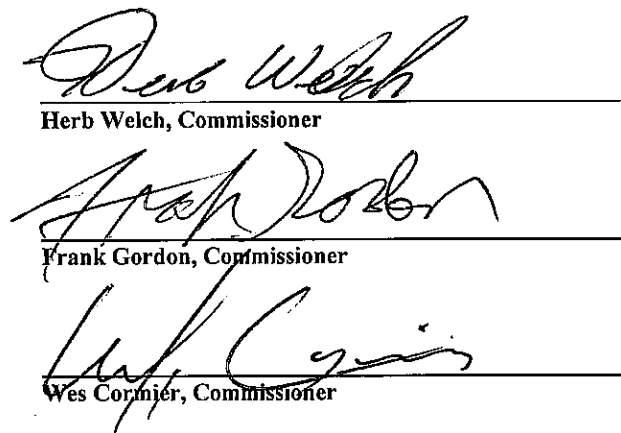 Herb Welch
Herb Welch, Commissioner
Frank Gordon
Frank Gordon, Commissioner
Wes Cormier, Commissioner